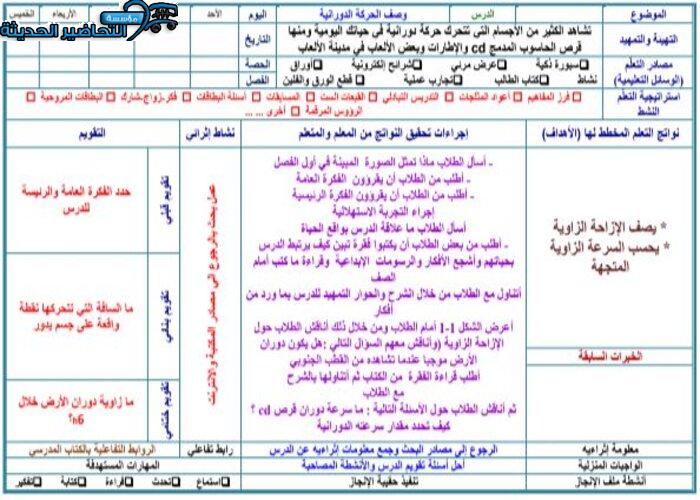 الموضوع الدرس وصف الحركة الدورانية اليوم الأحد الأربعاء الخميس
مؤسسة التحاضير الحديثة
التهيئة والتمهيد
تشاهد الكثير من الأجسام التي تتحرك حركة دورانية في حياتك اليومية ومنها
قرص الحاسوب المدمج cd والإطارات وبعض الألعاب في مدينة الألعاب
التاريخ
مصادر التعلم
(الوسائل التعليمية)
سبورة ذكية عرض مرئي شرائح إلكترونية أوراق
نشاط كتاب الطالب تجارب عملية قطع الورق والفلين
الحصة
الفصل
استراتيجية التعلم
النشط
فرز المفاهيم أعواد المثلجات التدريس التبادلي القبعات الست المسابقات أسئلة البطاقات فكر-زواج-شارك البطاقات المروحية
الرؤوس المرقمة أخرى ... ...
نواتج التعلم المخطط لها (الأهداف) إجراءات تحقيق النواتج من المعلم والمتعلم نشاط إثرائي التقويم
* يصف الإزاحة الزاوية
* يحسب السرعة الزاوية
المتجهة
الخبرات السابقة
- أسأل الطلاب ماذا تمثل الصورة المبينة في أول الفصل
- أطلب من الطلاب أن يقرؤون الفكرة العامة
- أطلب من الطلاب أن يقرؤون الفكرة الرئيسية
إجراء التجربة الاستهلالية
أسأل الطلاب ما علاقة الدرس بواقع الحياة
- أطلب من بعض الطلاب أن يكتبوا فقرة تبين كيف يرتبط الدرس
بحياتهم وأشجع الأفكار والرسومات الإبداعية وقراءة ما كتب أمام
الصف
أتناول مع الطلاب من خلال الشرح والحوار التمهيد للدرس بما ورد من
أفكار
أعرض الشكل 1-1 أمام الطلاب ومن خلال ذلك أناقش الطلاب حول
الإزاحة الزاوية (وأناقش معهم السؤال التالي :هل يكون دوران
الأرض موجبا عندما تشاهده من القطب الجنوبي
أطلب قراءة الفقرة من الكتاب ثم أتناولها بالشرح
مع الطلاب
ثم أناقش الطلاب حول الأسئلة التالية : ما سرعة دوران قرص cd ؟
كيف تحدد مقدار سرعته الدورانية
عمل بحث بالرجوع الى مصادر المكتبة والانترنت
تقويم قبلي
حدد الفكرة العامة والرئيسة
للدرس
تقويم بنائي
ما المسافة التي تتحركها نقطة
واقعة على جسم يدور
تقويم ختامي
ما زاوية دوران الأرض خلال
6h؟
معلومة إثرائية الرجوع إلى مصادر البحث وجمع معلومات إثراءيه عن الدرس رابط تفاعلي الروابط التفاعلية بالكتاب المدرسي
الواجبات المنزلية أحل أسئلة تقويم الدرس والأنشطة المصاحبة المهارات المستهدفة
أنشطة ملف الإنجاز تنفيذ حقيبة الإنجاز استماع تحدث قراءة كتابة تفكير